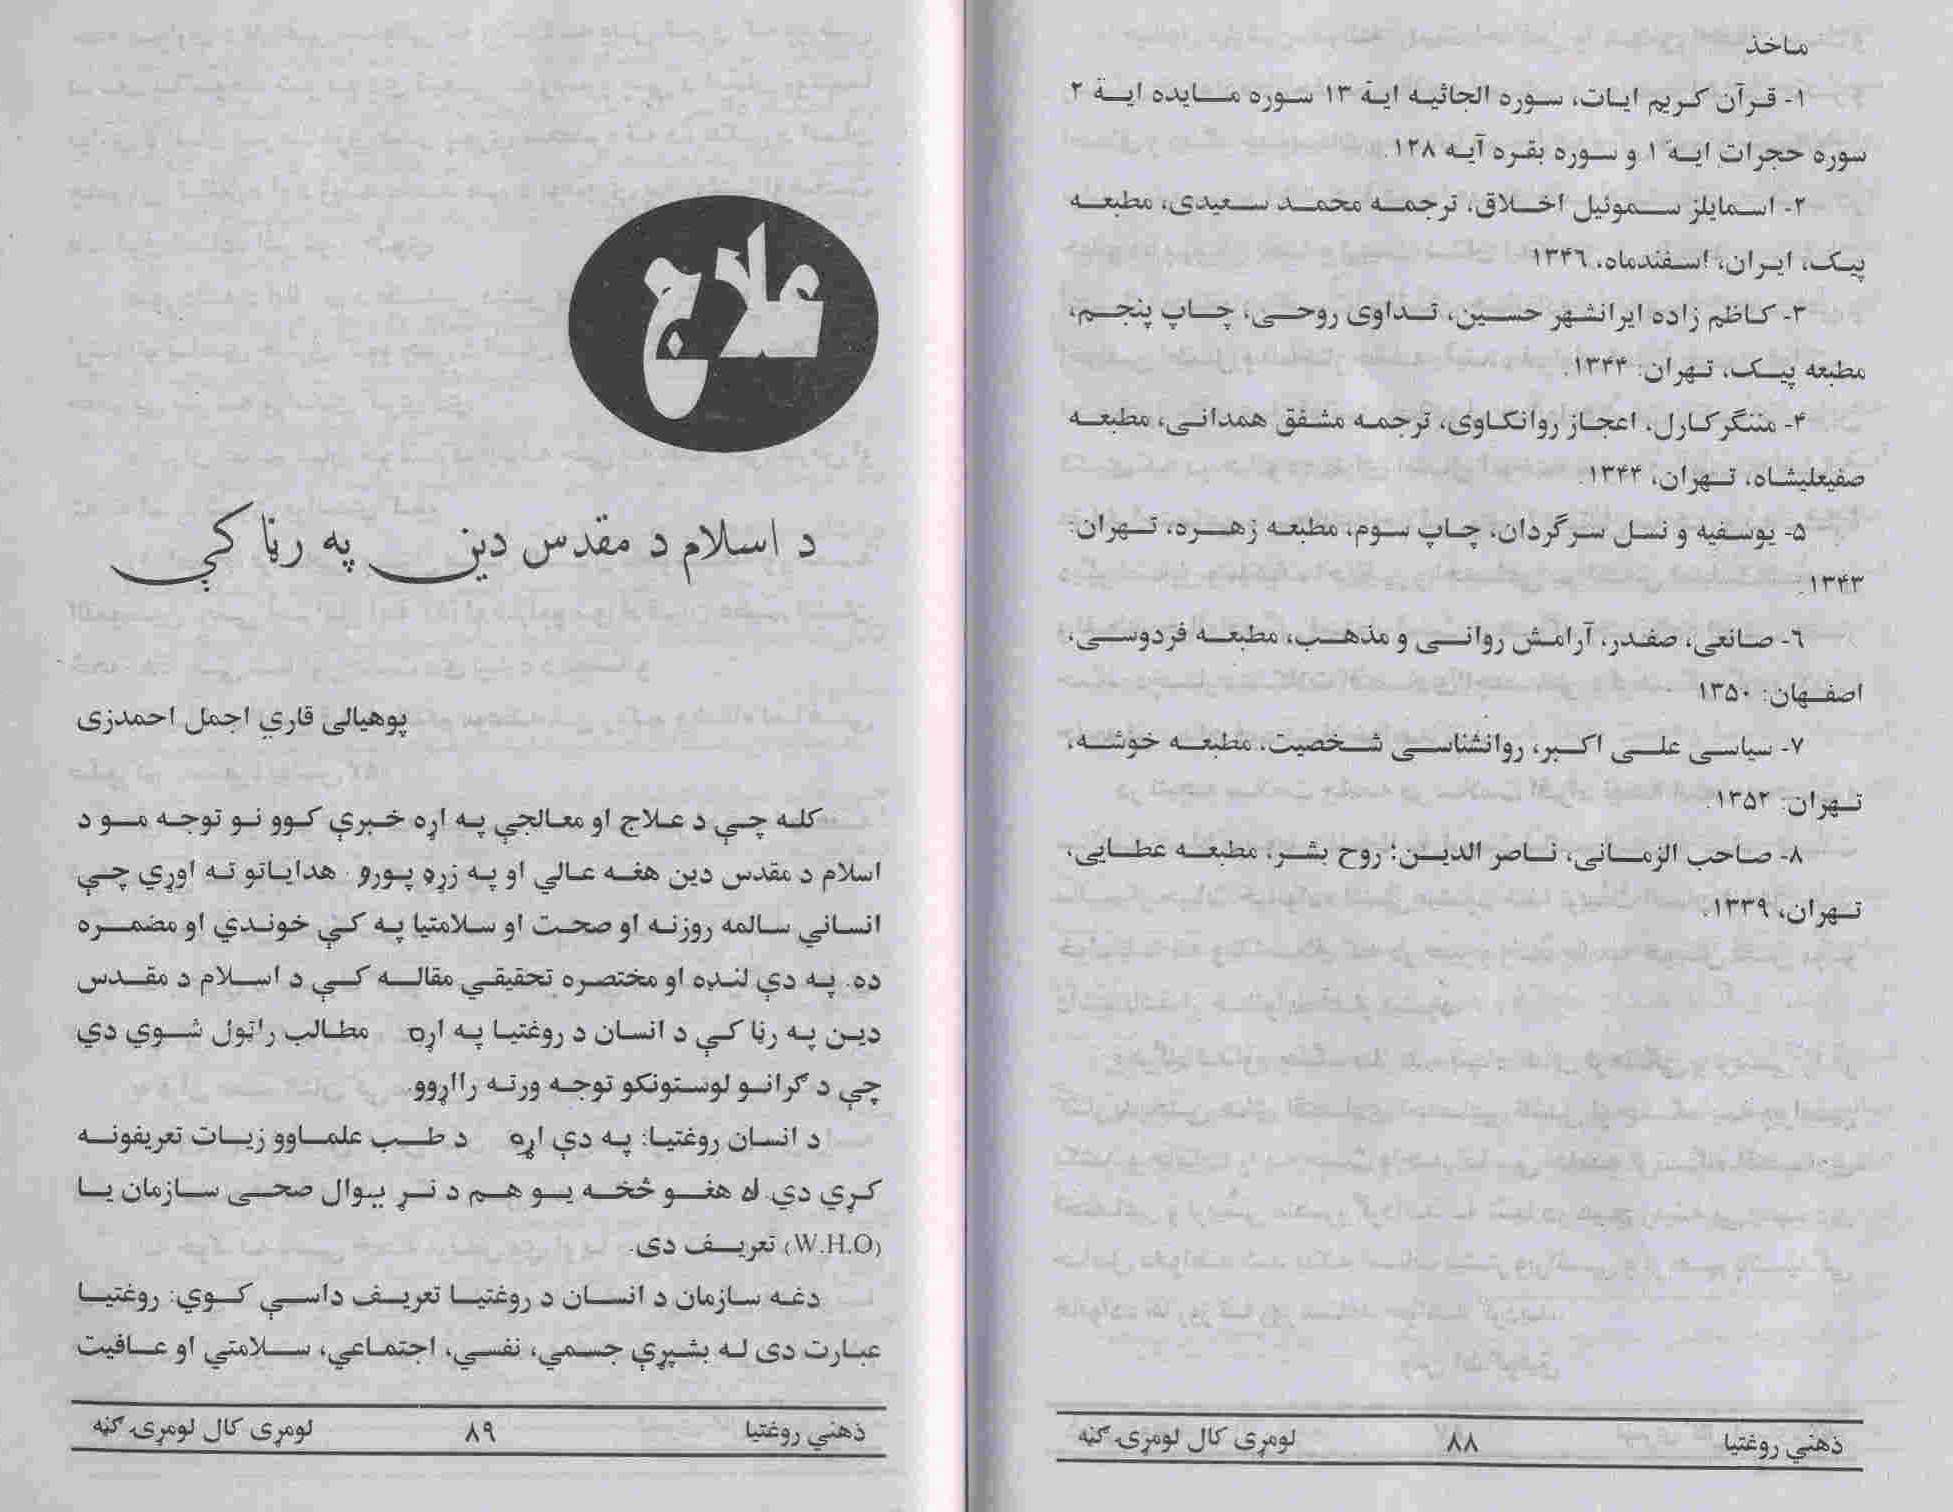 ماخذ
۱- قرآن کریم ایات، سوره الجاثیه ایة ۱۳ سوره مایده ایة ۲
سوره حجرات ایة ۱ و سوره بقره آیه ۱۲۸.
۲- اسمایلز سموئیل اخلاق، ترجمه محمد سعیدی، مطبعه
پیک، ایران، اسفندماه، ۱۳۴٦
۳- کاظم زاده ایرانشهر حسین، تداوی روحی، چاپ پنجم،
مطبعه پیک، تهران: ۱۳۴۴.
۴- مننگر کارل، اعجاز روانکاوی، ترجمه مشفق همدانی، مطبعه
صفیعلیشاه، تهران، ۱۳۴۴.
۵- یوسفیه و نسل سرگردان، چاپ سوم، مطبعه زهره، تهران:
۱۳۴۳.
٦- صانعی، صفدر، آرامش روانی و مذهب، مطبعه فردوسی،
اصفهان: ۱۳۵۰
۷- سیاسی علی اکبر، روانشناسی شخصیت، مطبعه خوشه،
تهران: ۱۳۵۲.
۸- صاحب الزمانی، ناصر الدین؛ روح بشر، مطبعه عطایی،
تهران، ۱۳۳۹.
ذهني روغتیا ۸۸ لومړی کال لومړۍ ګڼه
علاج
د اسلام د مقدس دین په رڼا کې
پوهیالی قاري اجمل احمدزی
کله چې د علاج او معالجې په اړه خبرې کوو نو توجه مو د
اسلام د مقدس دین هغه عالي او په زړه پورو هدایاتو ته اوړي چې
انساني سالمه روزنه او صحت او سلامتیا په کې خوندي او مضمره
ده. په دې لنډه او مختصره تحقیقي مقاله کې د اسلام د مقدس
دین په رڼا کې د انسان د روغتیا په اړه مطالب راټول شوي دي
چې د ګرانو لوستونکو توجه ورته رااړوو.
د انسان روغتیا: په دې اړه د طب علماوو زیات تعریفونه
کړي دي. له هغو څخه یو هم د نړیوال صحی سازمان یا
(W.H.O) تعریف دی.
دغه سازمان د انسان د روغتیا تعریف داسې کوي: روغتیا
عبارت دی له بشپړې جسمي، نفسي، اجتماعي، سلامتي او عافیت
ذهني روغتیا ۸۹ لومړی کال لومړۍ ګڼه